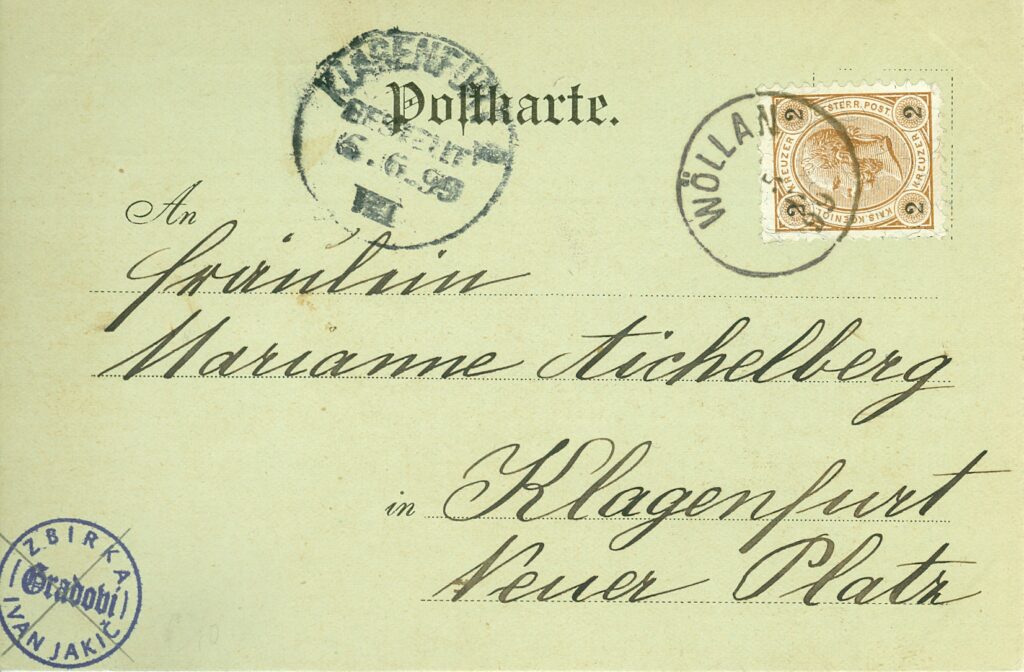 KLAGENFURT
BESTELLT
6.6.99
III
Postkarte.
WÖLLAN
2 KREUZER 2
OESTERR. POST
KAIS. KOENIGL.
2 KREUZER 2
An
Fräulein
Marianne Aichelberg
in Klagenfurt
Neuer Platz
ZBIRKA
Gradovi
IVAN JAKIČ